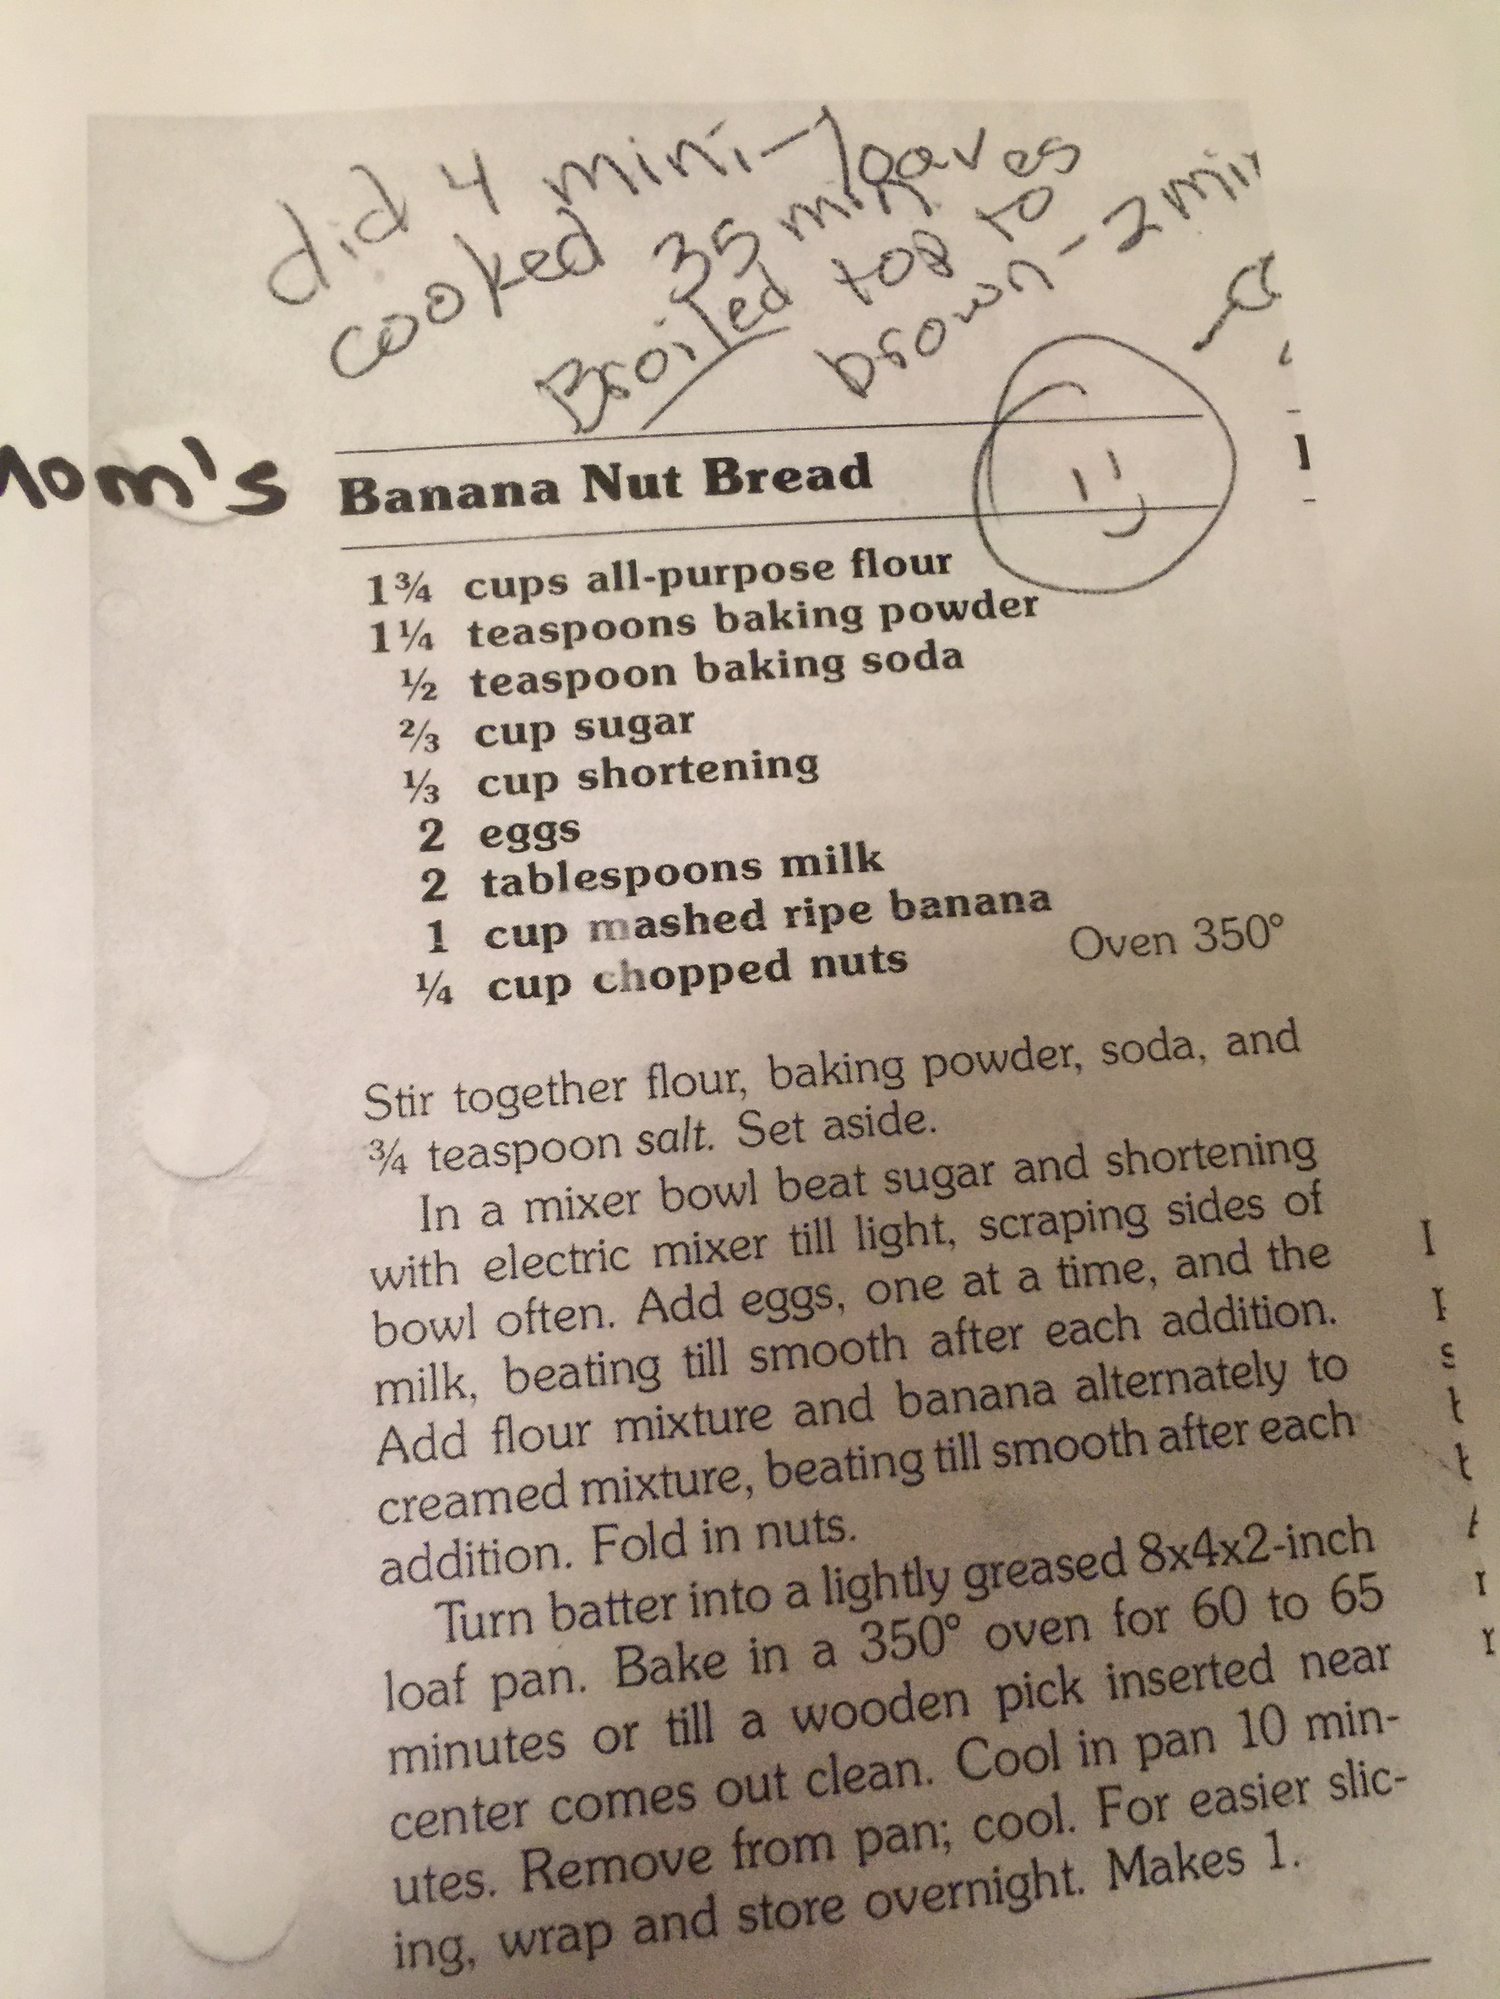 did 4 mini-loaves
cooked 35 min
Broiled top to
brown - 2 min
Mom's
Banana Nut Bread
1¾ cups all-purpose flour
1¼ teaspoons baking powder
½ teaspoon baking soda
⅔ cup sugar
⅓ cup shortening
2 eggs
2 tablespoons milk
1 cup mashed ripe banana
¼ cup chopped nuts
Oven 350°
Stir together flour, baking powder, soda, and
¾ teaspoon salt. Set aside.
In a mixer bowl beat sugar and shortening
with electric mixer till light, scraping sides of
bowl often. Add eggs, one at a time, and the
milk, beating till smooth after each addition.
Add flour mixture and banana alternately to
creamed mixture, beating till smooth after each
addition. Fold in nuts.
Turn batter into a lightly greased 8x4x2-inch
loaf pan. Bake in a 350° oven for 60 to 65
minutes or till a wooden pick inserted near
center comes out clean. Cool in pan 10 min-
utes. Remove from pan; cool. For easier slic-
ing, wrap and store overnight. Makes 1.